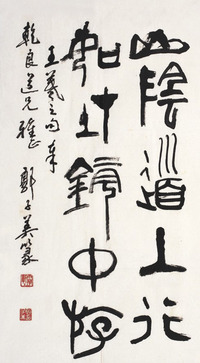 山陰道上行
如在鏡中游
王羲之句奉
乾良道兄雅正
鄭子美篆